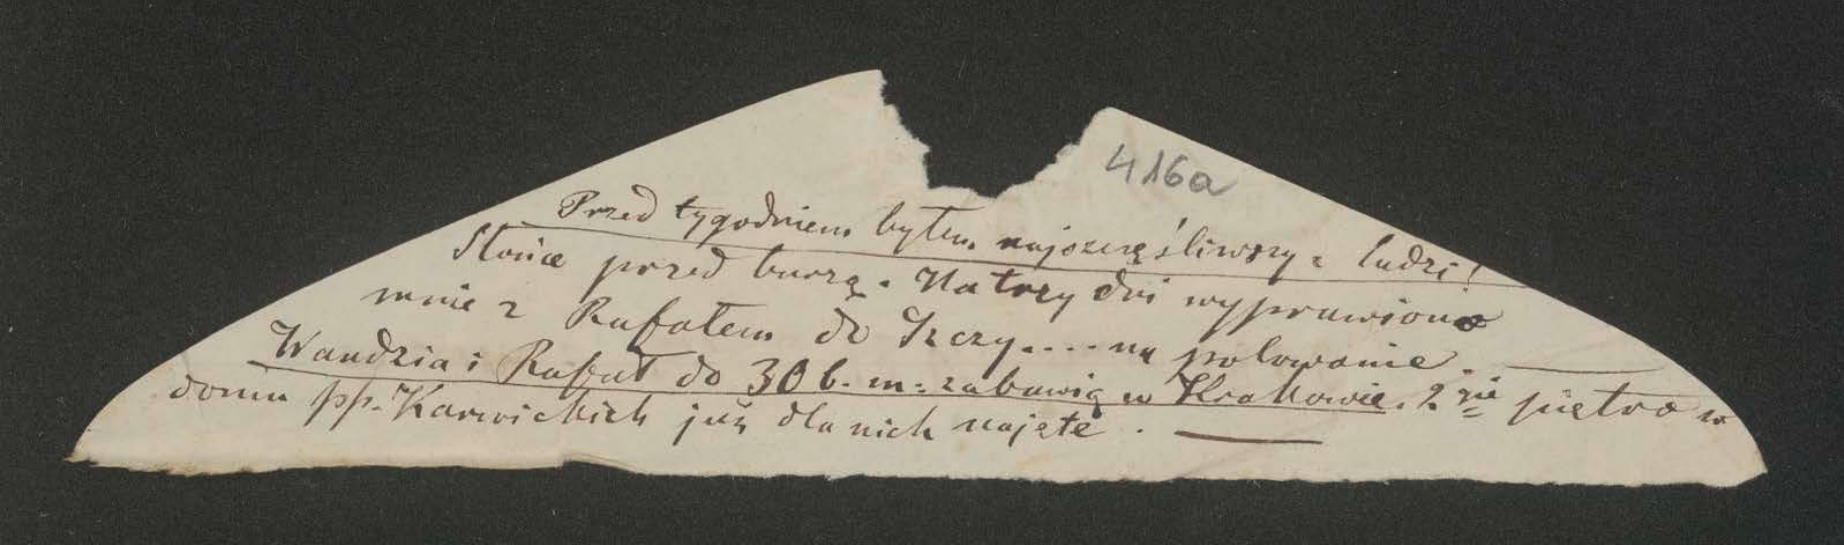 416a
Przed tygodniem byłem najszczęśliwszy z ludzi!
Słońce przed burzą. Na trzy dni wyprawiono
mnie z Rafałem do .... na polowanie.
Wandzia i Rafał do 30 b. m: zabawią w Krakowie. 2gie piętro w
domu pp. Karwickich już dla nich najęte.